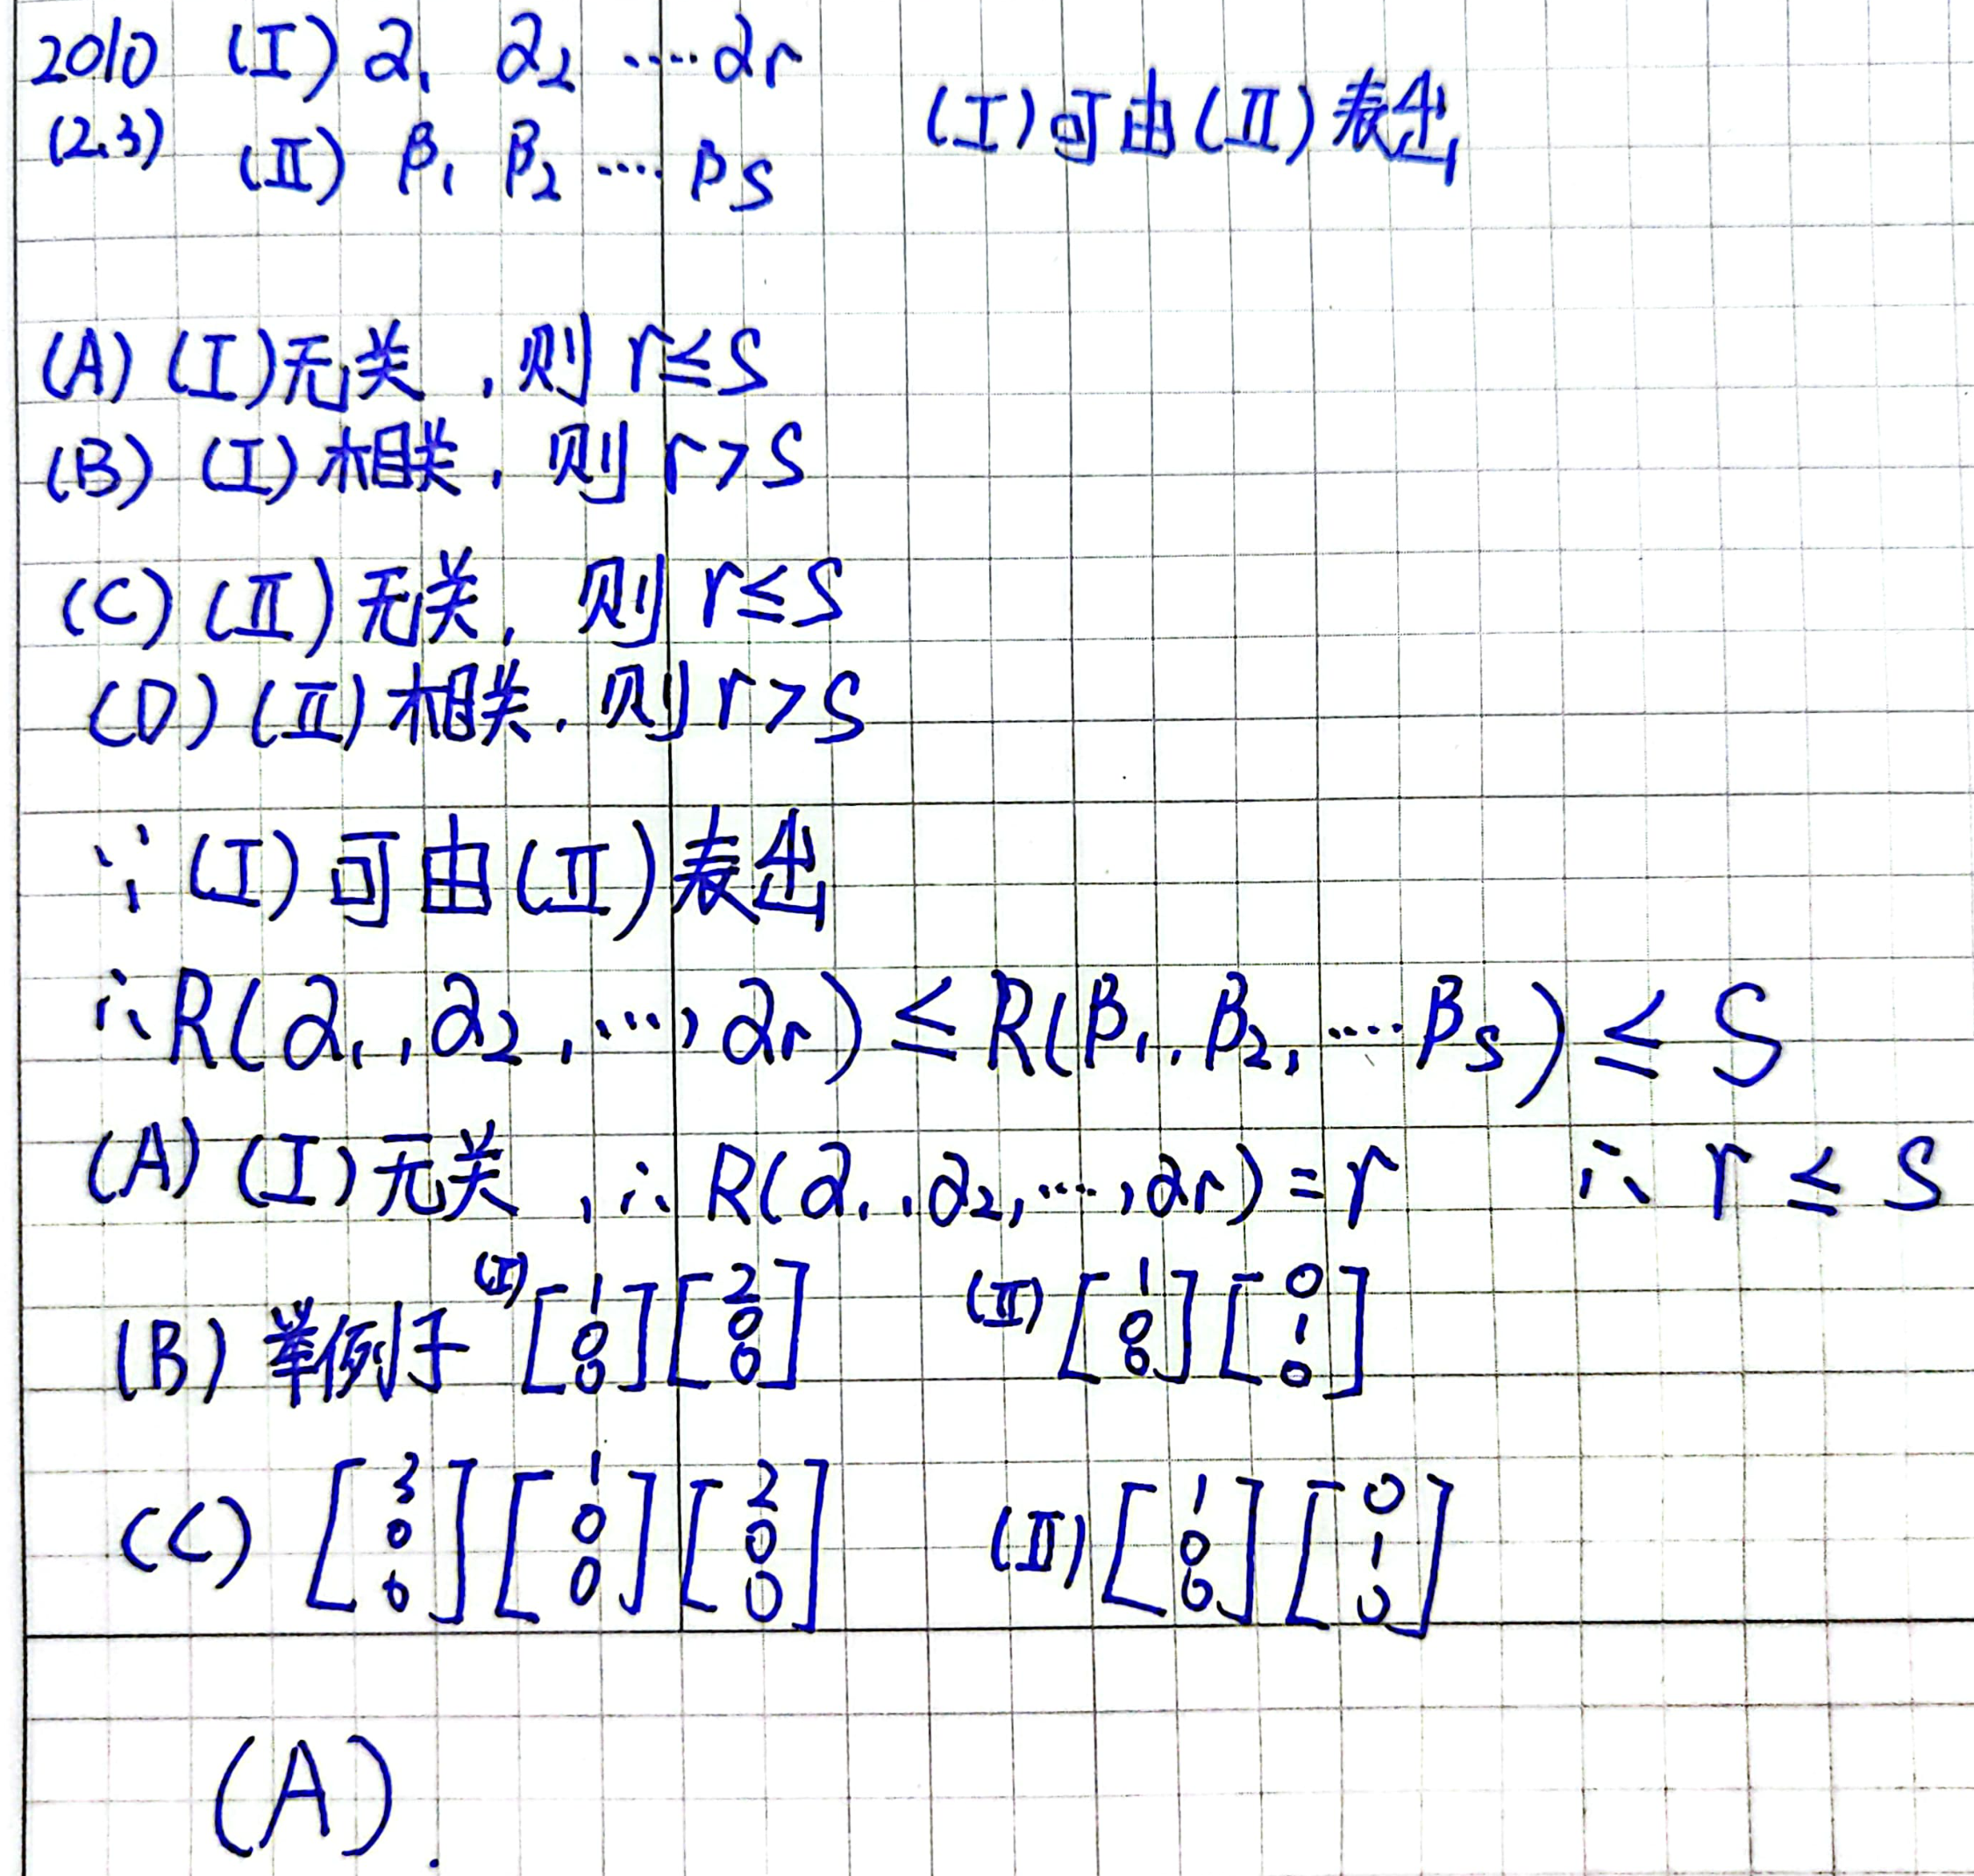 2010 (I) α₁ α₂ ···· αr
(2.3) (II) β₁ β₂ ···· βs (I)可由(II)表出
(A) (I)无关,则 r≤s
(B) (I)相关,则 r>s
(C) (II)无关,则 r≤s
(D) (II)相关,则 r>s
∵ (I)可由(II)表出
∴ R(α₁,α₂,···,αr) ≤ R(β₁,β₂,····βs) ≤ s
(A) (I)无关,∴ R(α₁,α₂,···,αr)=r ∴ r ≤ s
(B) 举例子 (I) [1 0 0] [2 0 0] (II) [1 0 0] [0 1 0]
(C) [3 0 0] [1 0 0] [2 0 0] (II) [1 0 0] [0 1 0]
(A).